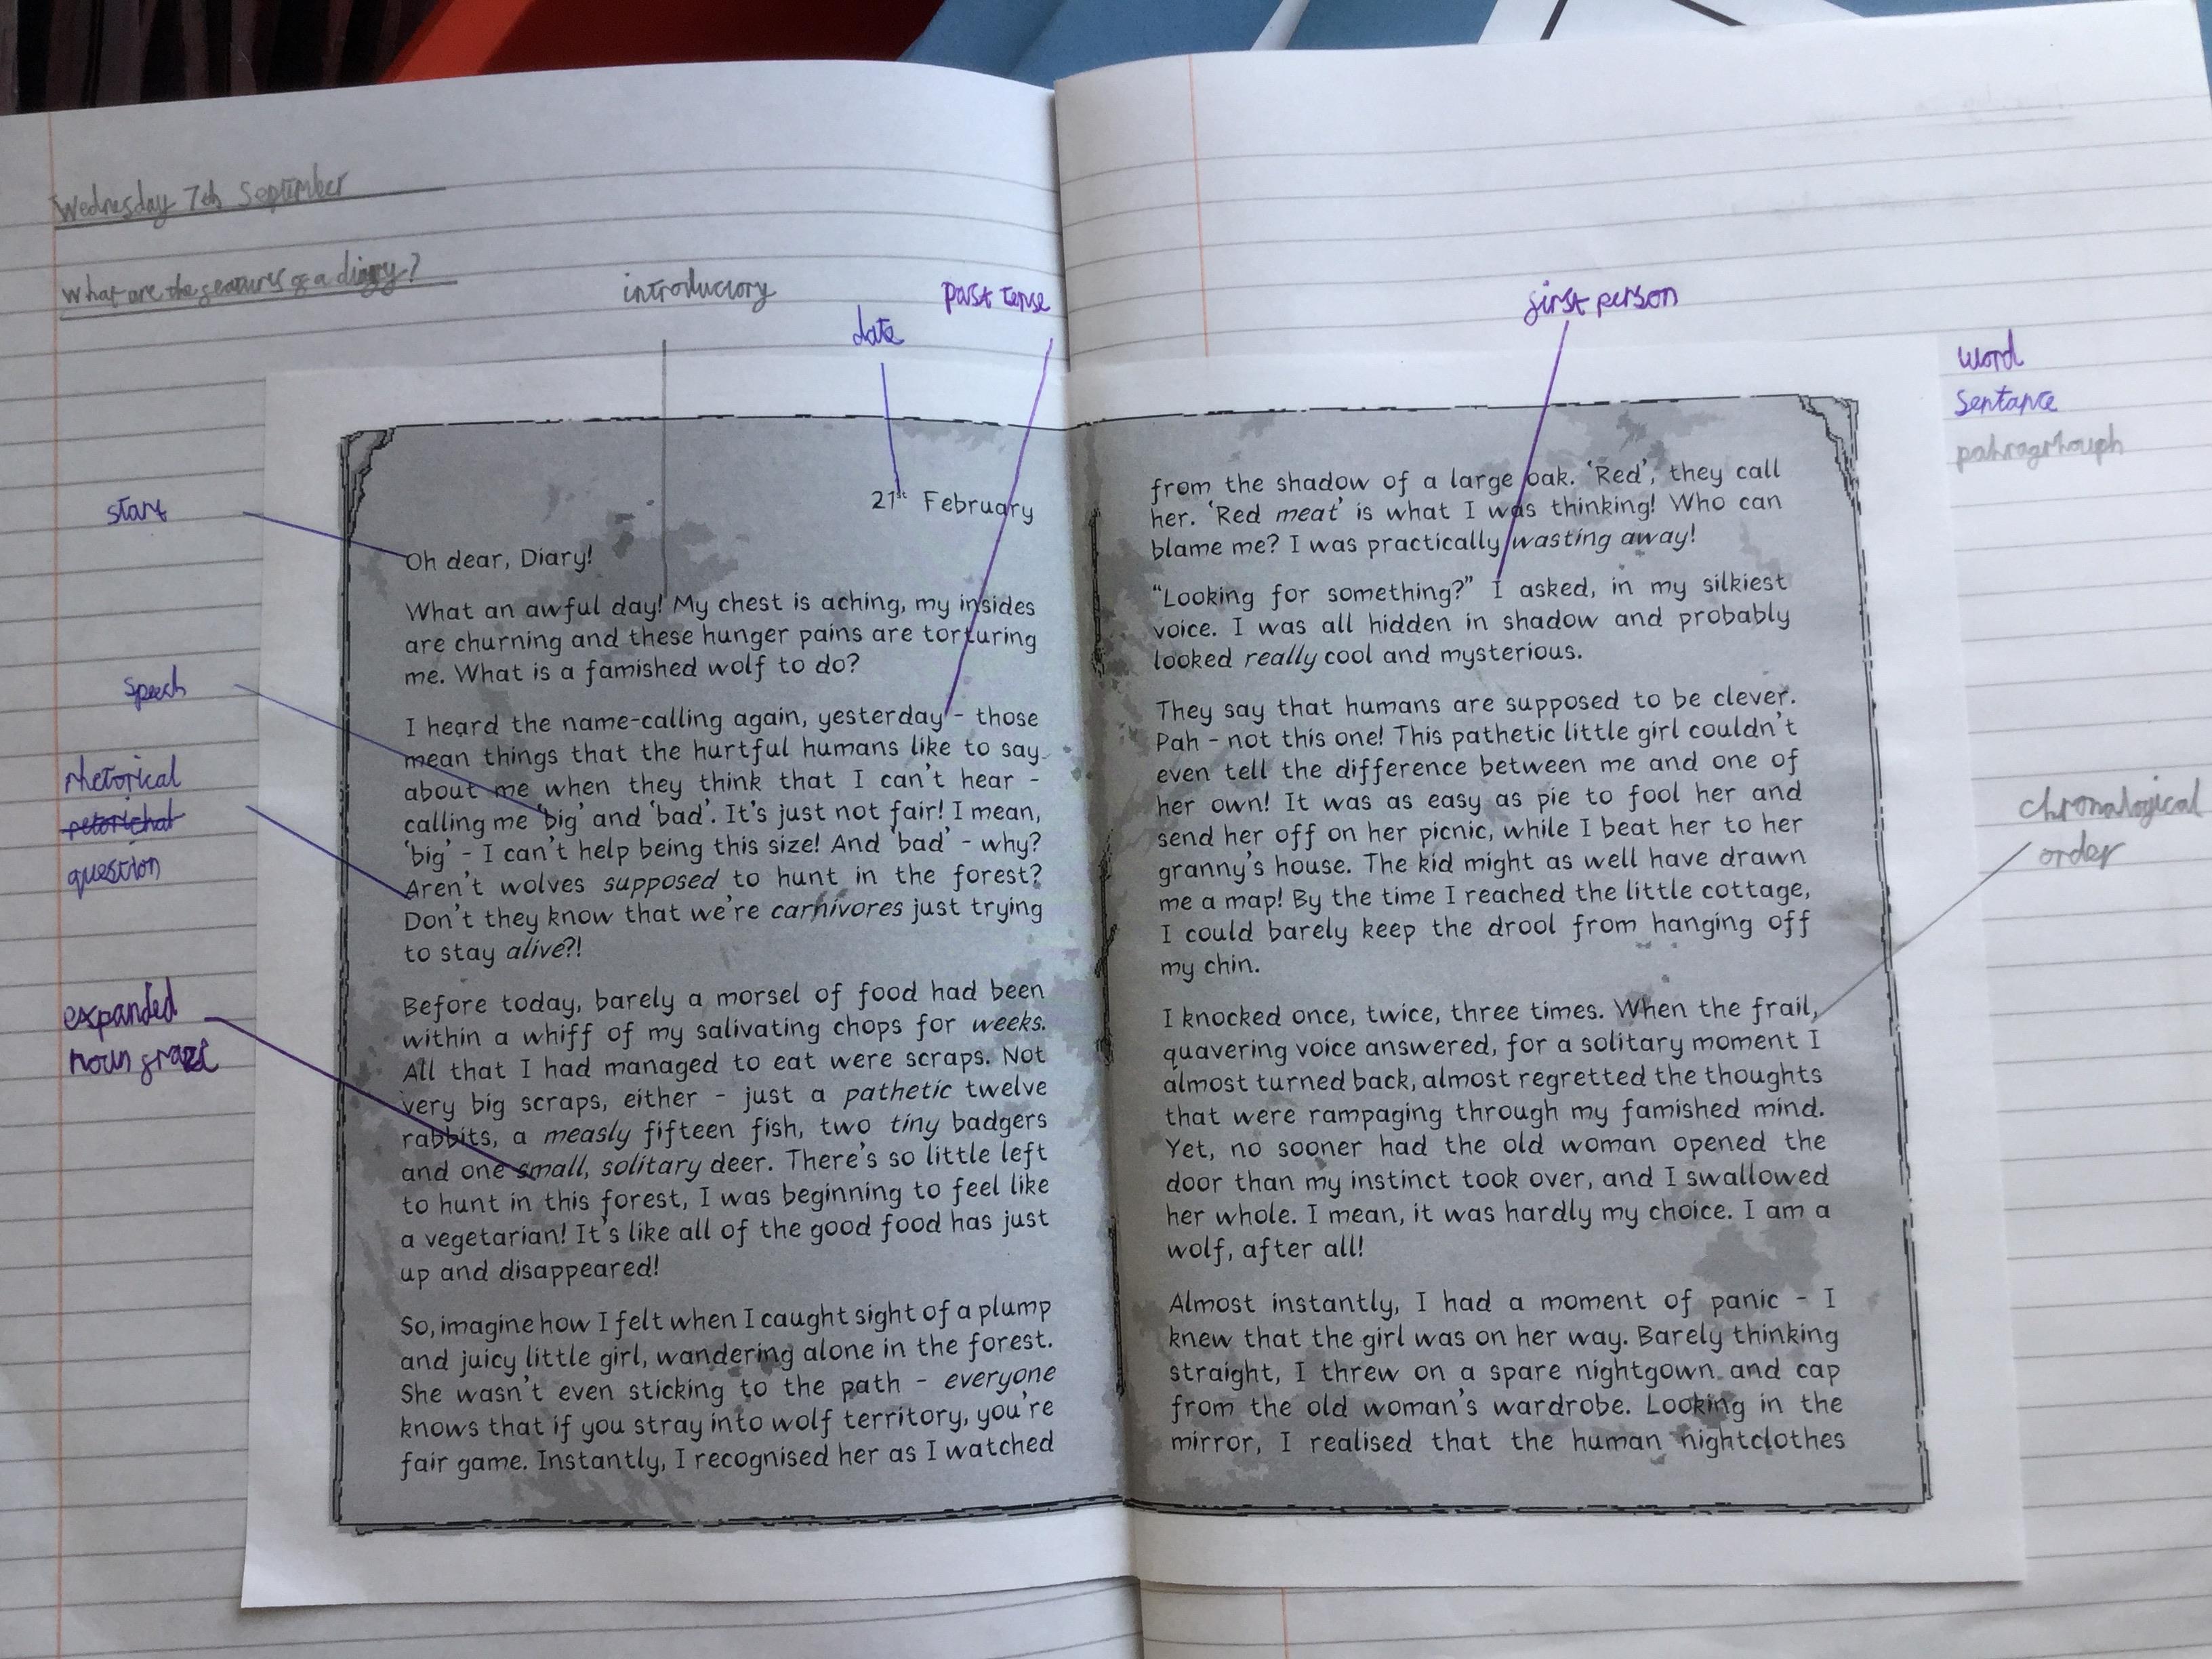 Wednesday 7th September
What are the features of a diary?
introductory
date
past tense
first person
word
Sentance
pahragrhouph
start
speech
rhetorical
retorichal
question
expanded
noun graze
chronalogical
order
21st February
Oh dear, Diary!
What an awful day! My chest is aching, my insides
are churning and these hunger pains are torturing
me. What is a famished wolf to do?
I heard the name-calling again, yesterday - those
mean things that the hurtful humans like to say
about me when they think that I can't hear -
calling me 'big' and 'bad'. It's just not fair! I mean,
'big' - I can't help being this size! And 'bad' - why?
Aren't wolves supposed to hunt in the forest?
Don't they know that we're carnivores just trying
to stay alive?!
Before today, barely a morsel of food had been
within a whiff of my salivating chops for weeks.
All that I had managed to eat were scraps. Not
very big scraps, either - just a pathetic twelve
rabbits, a measly fifteen fish, two tiny badgers
and one small, solitary deer. There's so little left
to hunt in this forest, I was beginning to feel like
a vegetarian! It's like all of the good food has just
up and disappeared!
So, imagine how I felt when I caught sight of a plump
and juicy little girl, wandering alone in the forest.
She wasn't even sticking to the path - everyone
knows that if you stray into wolf territory, you're
fair game. Instantly, I recognised her as I watched
from the shadow of a large oak. 'Red', they call
her. 'Red meat' is what I was thinking! Who can
blame me? I was practically wasting away!
"Looking for something?" I asked, in my silkiest
voice. I was all hidden in shadow and probably
looked really cool and mysterious.
They say that humans are supposed to be clever.
Pah - not this one! This pathetic little girl couldn't
even tell the difference between me and one of
her own! It was as easy as pie to fool her and
send her off on her picnic, while I beat her to her
granny's house. The kid might as well have drawn
me a map! By the time I reached the little cottage,
I could barely keep the drool from hanging off
my chin.
I knocked once, twice, three times. When the frail,
quavering voice answered, for a solitary moment I
almost turned back, almost regretted the thoughts
that were rampaging through my famished mind.
Yet, no sooner had the old woman opened the
door than my instinct took over, and I swallowed
her whole. I mean, it was hardly my choice. I am a
wolf, after all!
Almost instantly, I had a moment of panic - I
knew that the girl was on her way. Barely thinking
straight, I threw on a spare nightgown and cap
from the old woman's wardrobe. Looking in the
mirror, I realised that the human nightclothes